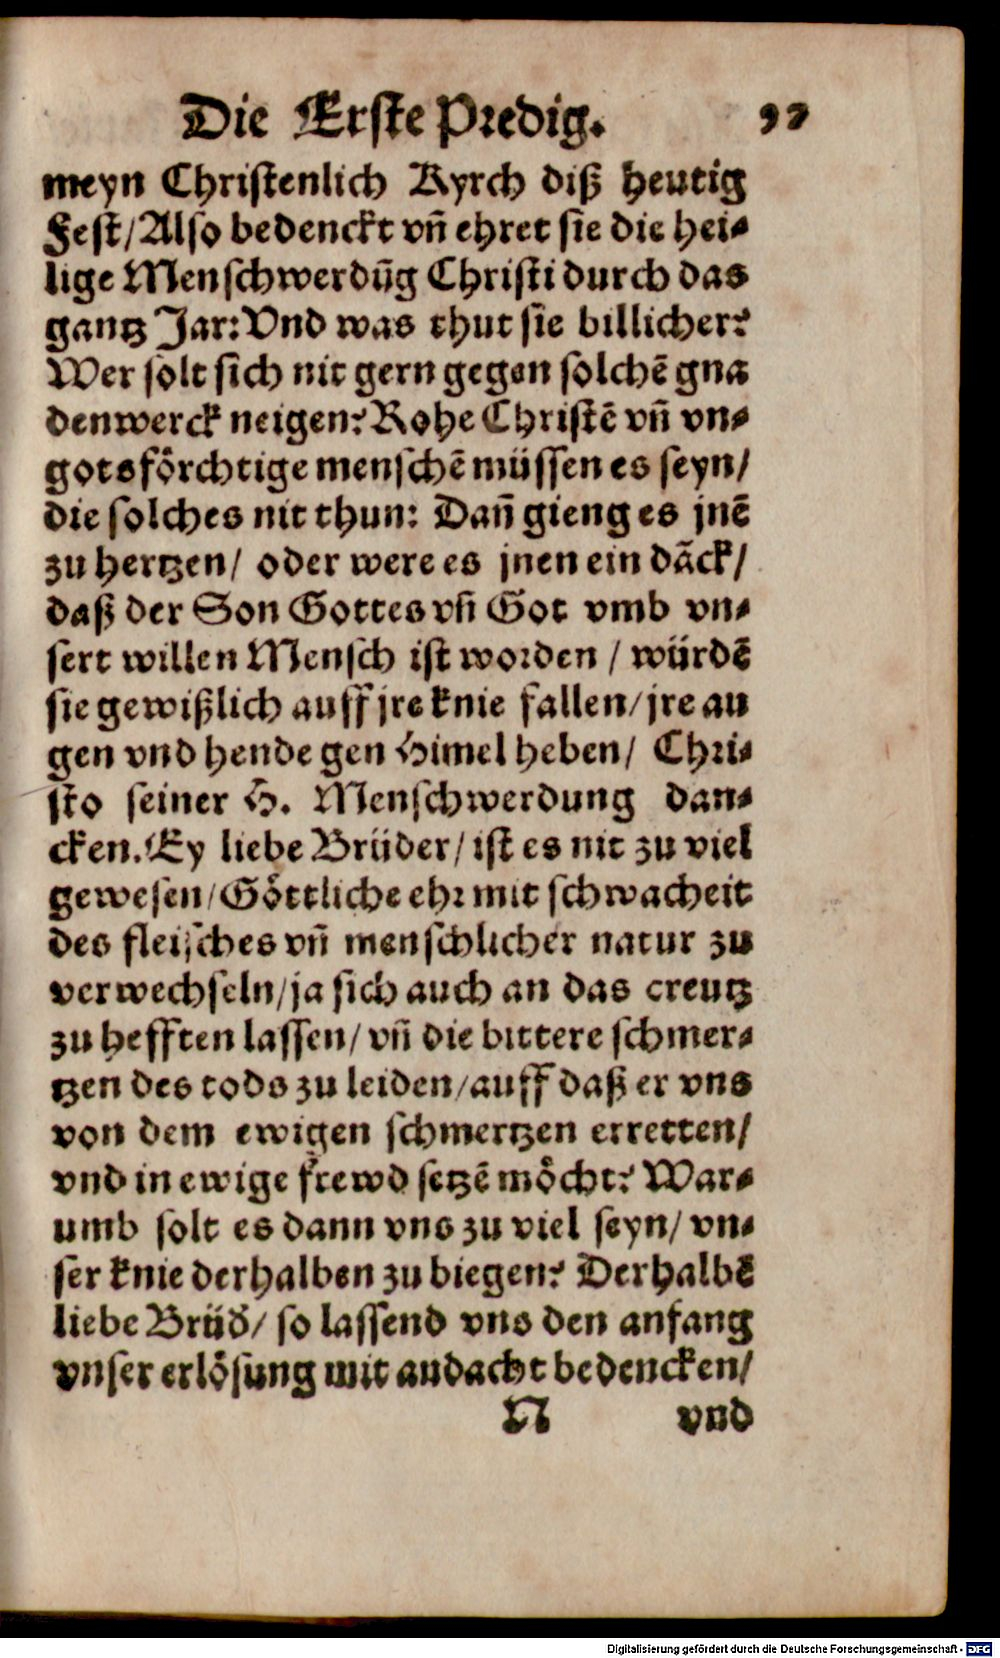 Die Erste Predig. 97
meyn Christenlich Kyrch diß heutig
Fest/Also bedenckt vñ ehret sie die hei-
lige Menschwerdũg Christi durch das
gantz Jar: Vnd was thut sie billicher?
Wer solt sich nit gern gegen solchẽ gna
denwerck neigen? Rohe Christẽ vñ vn-
gotsförchtige menschẽ müssen es seyn/
die solches nit thun: Dañ gieng es jnẽ
zu hertzen/ oder were es jnen ein dãck/
daß der Son Gottes vñ Got vmb vn-
sert willen Mensch ist worden / würdẽ
sie gewißlich auff jre knie fallen/jre au
gen vnd hende gen Himel heben/ Chri-
sto seiner H. Menschwerdung dan-
cken. Ey liebe Brüder/ ist es nit zu viel
gewesen/Göttliche ehr mit schwacheit
des fleisches vñ menschlicher natur zu
verwechseln/ja sich auch an das creutz
zu hefften lassen/ vñ die bittere schmer-
tzen des tods zu leiden/auff daß er vns
von dem ewigen schmertzen erretten/
vnd in ewige frewd setzẽ möcht? War-
umb solt es dann vns zu viel seyn/ vn-
ser knie derhalben zu biegen? Derhalbẽ
liebe Brüd̃/ so lassend vns den anfang
vnser erlösung mit andacht bedencken/
N vnd
Digitalisierung gefördert durch die Deutsche Forschungsgemeinschaft - DFG